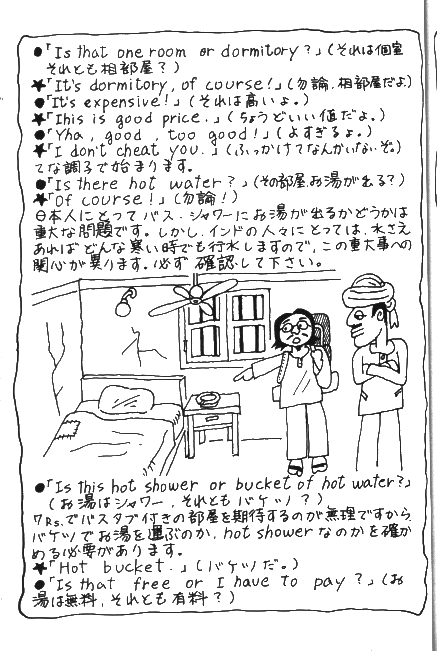 ●「Is that one room or dormitory?」(それは個室
それとも相部屋?)
★「It's dormitory, of course!」(勿論、相部屋だよ)
●「It's expensive!」(それは高いよ。)
★「This is good price.」(ちょうどいい値だよ。)
●「Yha, good, too good!」(よすぎるよ。)
★「I don't cheat you.」(ふっかけてなんかいないぞ。)
てな調子で始まります。
●「Is there hot water?」(その部屋、お湯が出る?)
★「Of course!」(勿論!)
日本人にとってバス・シャワーにお湯が出るかどうかは
重大な問題です。しかし、インドの人々にとっては、水さえ
あればどんな寒い時でも行水しますので、この重大事への
関心が異ります。必ず確認して下さい。
●「Is this hot shower or bucket of hot water?」
(お湯はシャワー、それともバケツ?)
7Rs.でバスタブ付きの部屋を期待するのが無理ですから
バケツでお湯を運ぶのか、hot showerなのかを確か
める必要があります。
★「Hot bucket.」(バケツだ。)
●「Is that free or I have to pay?」(お
湯は無料、それとも有料?)